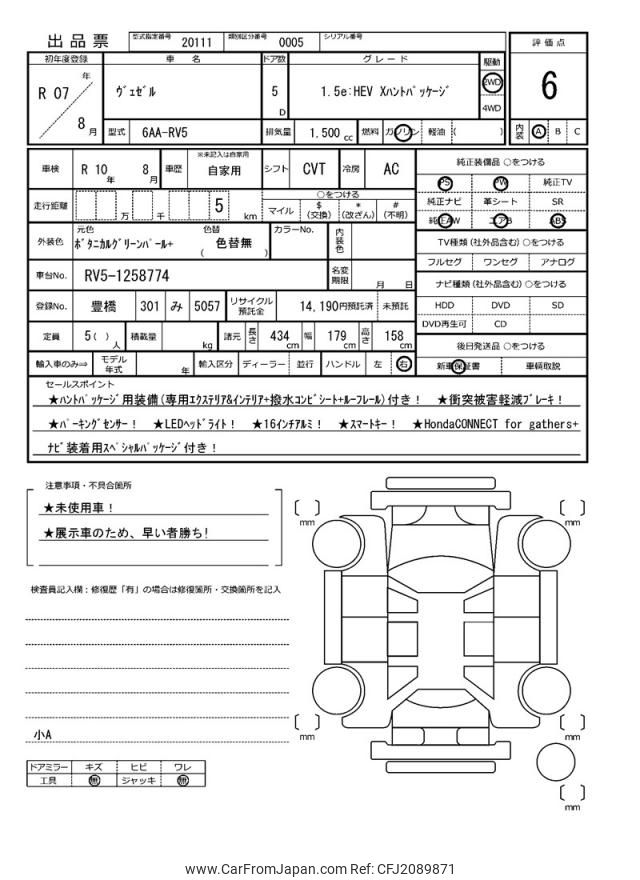 出品票 型式指定番号 20111 類別区分番号 0005 シリアル番号
初年度登録 車名 ドア数 グレード 駆動 評価点
R 07 年 8 月 ヴェゼル 5 D 1.5e:HEV Xハントパッケージ 2WD 4WD 6
型式 6AA-RV5 排気量 1.500 cc 燃料 ガソリン 軽油 ( ) 内装 A B C
車検 R 10 年 8 月 車歴 ※未記入は自家用 自家用 シフト CVT 冷房 AC
純正装備品 ○をつける
PS PW 純正TV
純正ナビ 革シート SR
純正AW エアB ABS
走行距離 万 千 5 km ○をつける
マイル $(交換) *(改ざん) #(不明)
外装色 元色 ボタニカルグリーンパール+ 色替 ( 色替無 ) カラーNo. 内装色
TV種類 (社外品含む) ○をつける
フルセグ ワンセグ アナログ
車台No. RV5-1258774 名変期限 月 日
ナビ種類 (社外品含む) ○をつける
HDD DVD SD
DVD再生可 CD
登録No. 豊橋 301 み 5057 リサイクル預託金 14,190円預託済 未預託
定員 5( ) 人 積載量 kg 諸元 長さ 434 cm 幅 179 cm 高さ 158 cm
後日発送品 ○をつける
輸入車のみ⇒ モデル年式 年 輸入区分 ディーラー 並行 ハンドル 左 右 新車保証書 車輌取説
セールスポイント
★ハントパッケージ用装備(専用エクステリア&インテリア+撥水コンビシート+ルーフレール)付き! ★衝突被害軽減ブレーキ!
★パーキングセンサー! ★LEDヘッドライト! ★16インチアルミ! ★スマートキー! ★HondaCONNECT for gathers+
ナビ装着用スペシャルパッケージ付き!
注意事項・不具合箇所
★未使用車!
★展示車のため、早い者勝ち!
検査員記入欄:修復歴「有」の場合は修復箇所・交換箇所を記入
小A
ドアミラー キズ ヒビ ワレ
工具 無 ジャッキ 無
mm
mm
mm
mm
mm
www.CarFromJapan.com Ref: CFJ2089871